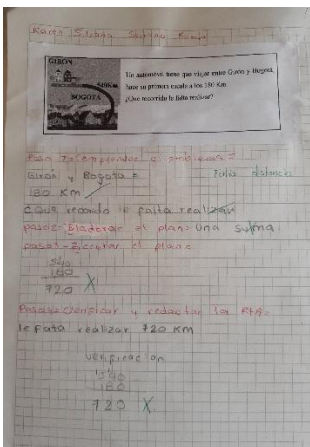 Karen Silvana
GIRÓN
540Km
BOGOTÁ
Un automóvil tiene que viajar entre Girón y Bogotá,
hace su primera escala a los 180 Km.
¿Que recorrido le falta realizar?
Girón y Bogotá =
Falta distancia
180 Km
¿Que recorrido le falta realizar
paso 2= Elaborar el plan= Una suma
Ejecutar el plan=
540
180
720 X
verificar y redactar la Rta=
le fata realizar 720 Km
verificacion
540
180
720 X